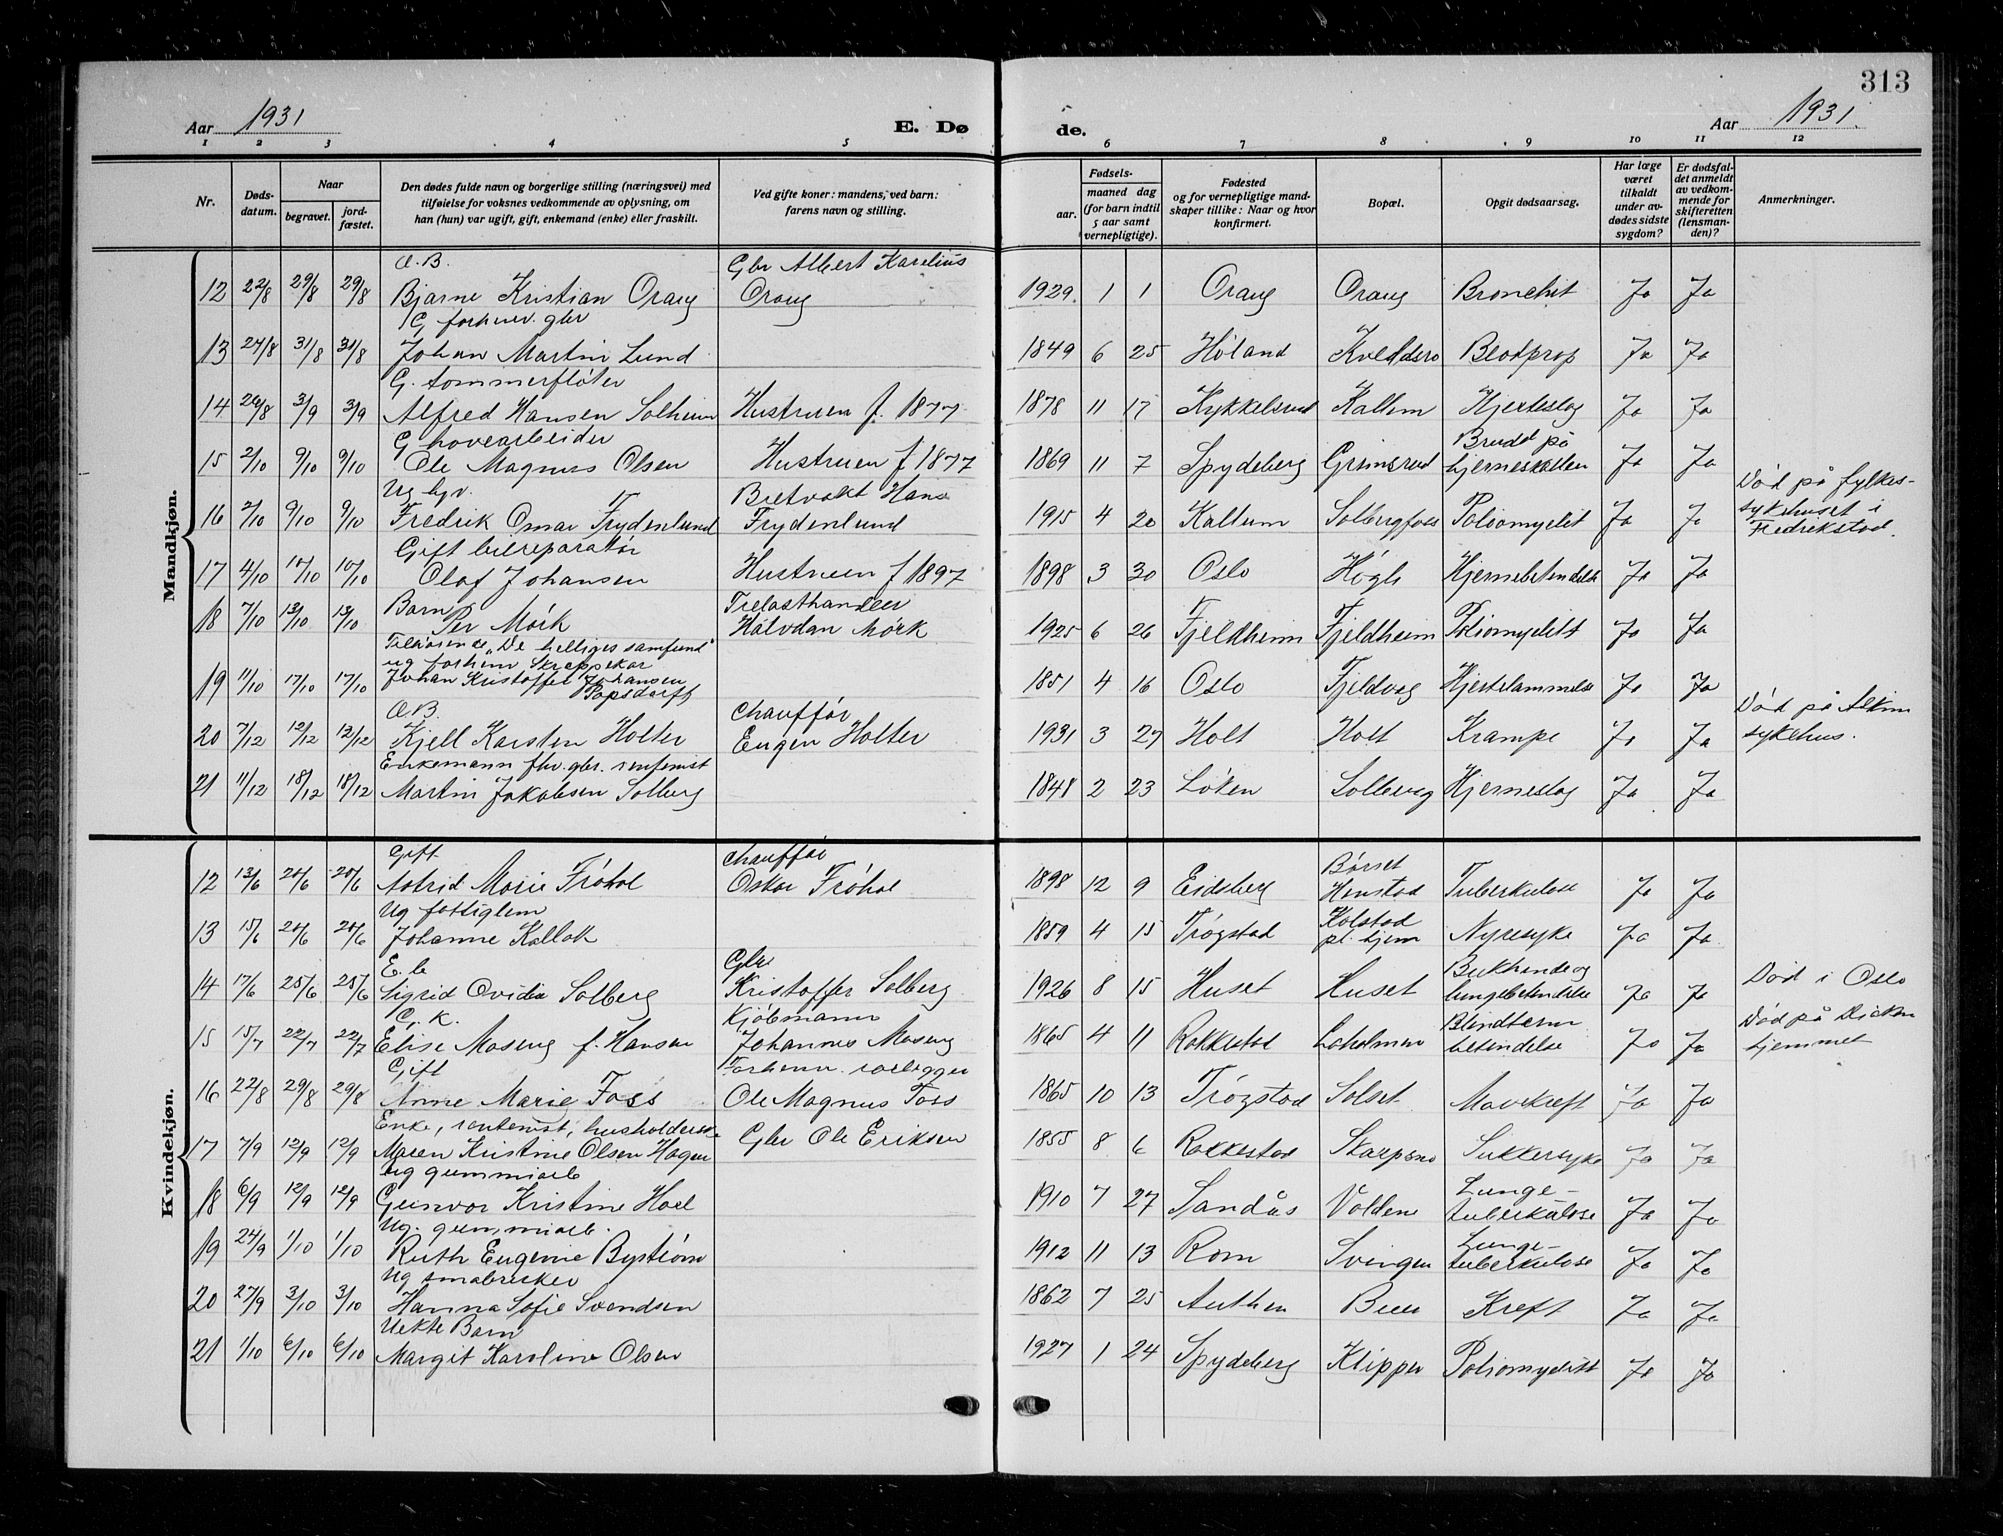 313
Aar 1931 E. Dø de. Aar 1931.
1 2 3 4 5 6 7 8 9 10 11 12
Nr. Dødsdatum. Naar begravet. jordfæstet. Den dødes fulde navn og borgerlige stilling (næringsvei) med tilføielse for voksnes vedkommende av oplysning, om han (hun) var ugift, gift, enkemand (enke) eller fraskilt. Ved gifte koner: mandens, ved barn: farens navn og stilling. Fødsels- aar. maaned dag (for barn indtil 5 aar samt vernepligtige). Fødested og for vernepligtige mandskaper tillike: Naar og hvor konfirmert. Bopæl. Opgit dødsaarsag. Har læge været tilkaldt under avdødes sidste sygdom? Er dødsfaldet anmeldt av vedkommende for skifteretten (lensmanden)? Anmerkninger.
Mandkjøn.
Æ.B. Gbr Albert Karelius
12 22/8 29/8 29/8 Bjarne Kristian Oraug Oraug 1929. 1 1 Oraug Oraug Bronchit Ja Ja
G forhenv. gbr
13 24/8 31/8 31/8 Johan Martin Lund 1849 6 25 Høland Blodprop Ja Ja
G. tømmerfløter
14 29/8 3/9 3/9 Alfred Hansen Solheim Hustruen f. 1877 1878 11 17 Kykkelsrud Kallum Hjerteslag Ja Ja
G havearbeider Brudd på
15 2/10 9/10 9/10 Ole Magnus Olsen Hustruen f 1877 1869 11 7 Spydeberg Grimsrud hjerneskallen Ja Ja
Ug. Hans Død på fylkes-
16 2/10 9/10 9/10 Fredrik Omar Frydenlund Frydenlund 1915 4 20 Kallum Solbergfoss Poliomyelit Ja Ja sykehuset i
Gift bilreparatør Fredrikstad.
17 4/10 10/10 10/10 Olaf Johansen Hustruen f 1897 1898 3 30 Oslo Høgli Hjernebetendelse Ja Ja
Barn Trelasthandler
18 7/10 13/10 13/10 Per Mørk Halvdan Mørk 1925 6 26 Fjeldheim Fjeldheim Poliomyelitt Ja Ja
Tilhørende "De helliges samfund"
ug forhenv Skreppekar
19 11/10 17/10 17/10 Johan Kristoffer Johansen 1851 4 16 Oslo Fjeldvag Hjertelammelse Ja Ja
Papsdorft
Æ.B. Chauffør Død på Askim
20 7/12 12/12 12/12 Kjell Karsten Holter Eugen Holter 1931 3 27 Holt Holt Krampe Ja Ja sykehus.
Enkemann fhv. gbr. rentenist
21 11/12 18/12 18/12 Martin Jakobsen Solberg 1848 2 23 Løken Solberg Hjerneslag Ja Ja
Kvindekjøn.
Gift Chauffør
12 13/6 20/6 20/6 Astrid Marie Frøhol Oskar Frøhol 1898 12 9 Eidsberg Henstad Tuberkulose Ja Ja
Ug fattiglem Kolstad
13 15/6 20/6 20/6 Johanne Kallak 1859 4 15 Trøgstad pl. hjem Nyresyke Ja Ja
E. b Gbr Bukhinde og
14 17/6 25/6 25/6 Sigrid Ovidia Solberg Kristoffer Solberg 1926 8 15 Huset Huset lungebetendelse Ja Ja Død i Oslo
G. K. Kjøbmann Blindtarm Død på
15 15/7 22/7 22/7 Elise Moseng f. Hansen Johannes Moseng 1865 4 11 Rakkestad Laholmen betendelse Ja Ja hjemmet
Gift Forhenv. rørlegger
16 22/8 29/8 29/8 Anne Marie Foss Ole Magnus Foss 1865 10 13 Trøgstad Solset Mavekreft Ja Ja
Enke, rentenist, husholderske
17 7/9 12/9 12/9 Maren Kristine Olsen Hagen Gbr Ole Eriksen 1855 8 6 Rakkestad Skarpsno Sukkersyke Ja Ja
Ug gummiarb Lunge-
18 6/9 12/9 12/9 Gunvor Kristine Hoel 1910 7 27 Sandås Volden tuberkulose Ja Ja
Ug. gummiarb. Lunge-
19 24/9 1/10 1/10 Ruth Eugenie Bystrøm 1912 11 13 Rom Svingen tuberkulose Ja Ja
Ug småbruker
20 27/9 3/10 3/10 Hanna Sofie Svendsen 1862 7 25 Kreft Ja Ja
Uekte Barn
21 1/10 6/10 6/10 Margit Karoline Olsen 1927 1 24 Spydeberg Klipper Poliomyelitt Ja Ja